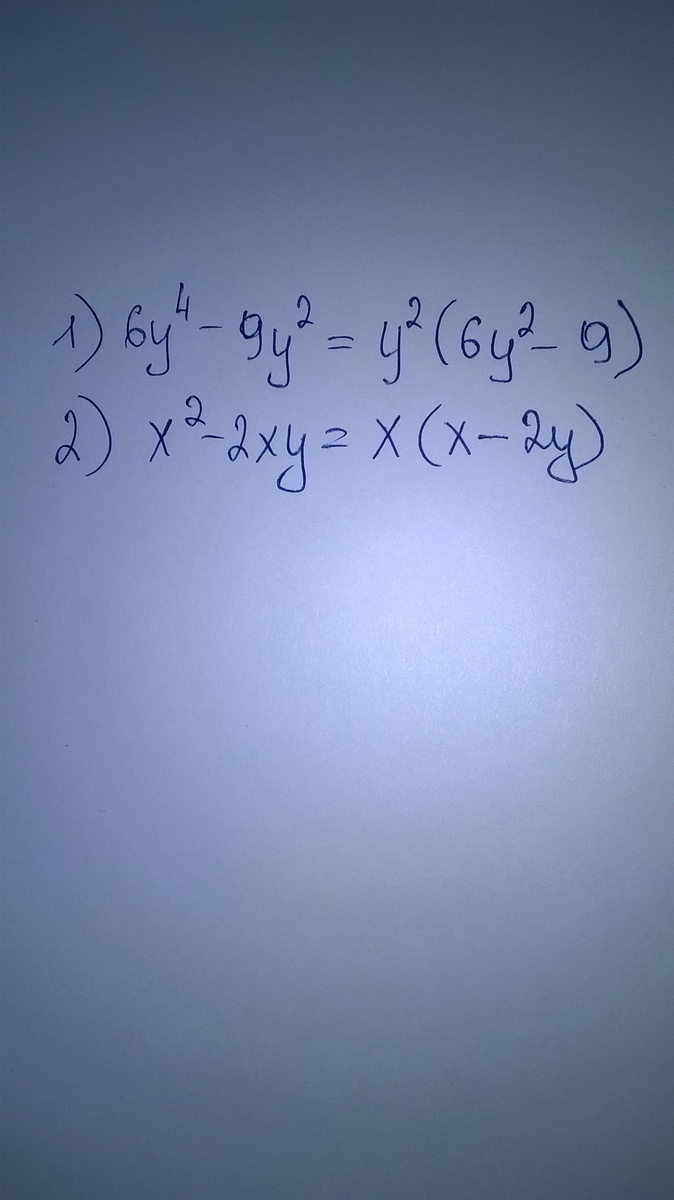 1) 6y⁴ - 9y² = y²(6y² - 9)
2) x² - 2xy = x(x - 2y)